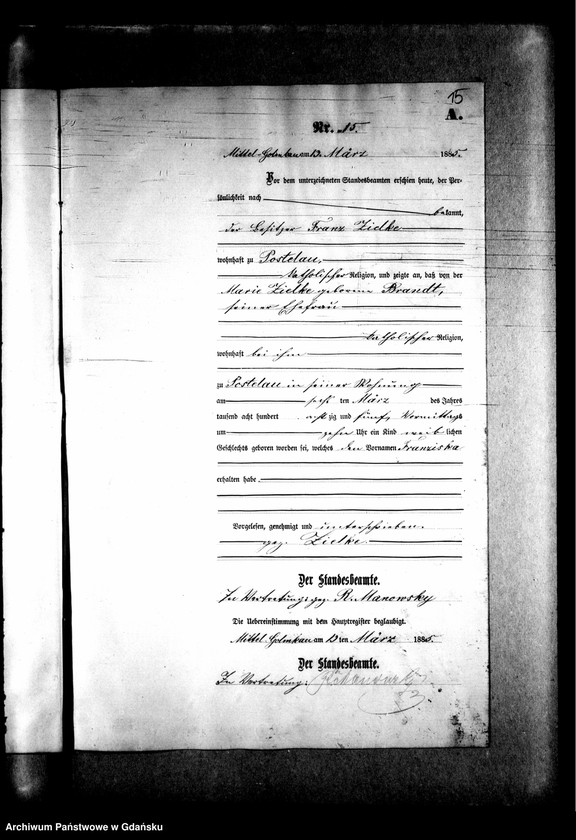 15
A.
Nr. 15.
Mittel-Golmkau am 13. März 1885.
Vor dem unterzeichneten Standesbeamten erschien heute, der Per-
sönlichkeit nach
bekannt,
der Besitzer Franz Zielke
wohnhaft zu Postelau,
katholischer Religion, und zeigte an, daß von der
Marie Zielke geborene Brandt,
seiner Ehefrau
katholischer Religion,
wohnhaft bei ihm
zu Postelau in seiner Wohnung
am ten März des Jahres
tausend acht hundert achtzig und fünf, Vormittags
um zehn Uhr ein Kind weiblichen
Geschlechts geboren worden sei, welches den Vornamen Franziska
erhalten habe.
Vorgelesen, genehmigt und unterschrieben.
gez. Zielke.
Der Standesbeamte.
In Vertretung: gez. R. Manowsky
Die Uebereinstimmung mit dem Hauptregister beglaubigt.
Mittel Golmkau am 13ten März 1885.
Der Standesbeamte.
In Vertretung:
Archiwum Państwowe w Gdańsku